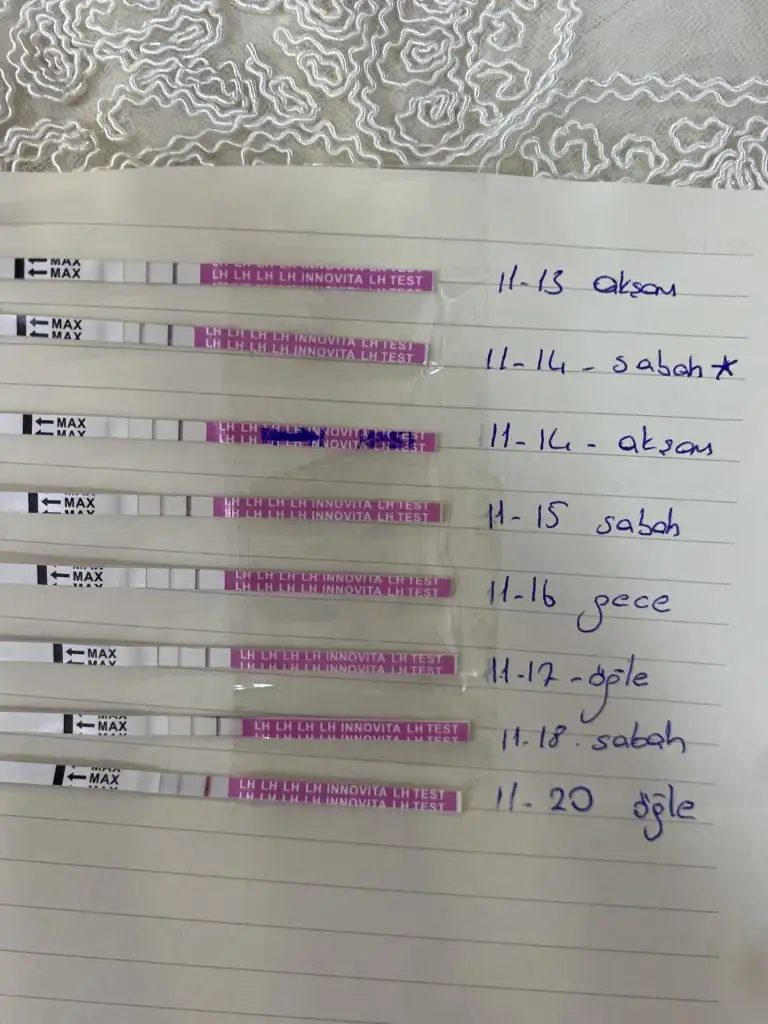 MAX
MAX
LH LH LH LH INNOVITA LH TEST
11-13 akşam
MAX
MAX
LH LH LH LH INNOVITA LH TEST
LH LH LH LH INNOVITA LH TEST
11-14 - sabah *
MAX
MAX
LH LH INNOVITA LH TEST
LH LH INNOVITA LH TEST
11-14 - akşam
MAX
MAX
LH LH LH LH INNOVITA LH TEST
LH LH LH LH INNOVITA LH TEST
11-15 sabah
MAX
MAX
LH LH LH LH INNOVITA LH TEST
LH LH LH LH INNOVITA LH TEST
11-16 gece
MAX
MAX
LH LH LH LH INNOVITA LH TEST
LH LH LH LH INNOVITA LH TEST
11-17 - öğle
MAX
MAX
LH LH LH LH INNOVITA LH TEST
11.18. sabah
MAX
MAX
LH LH LH LH INNOVITA LH TEST
LH LH LH LH INNOVITA LH TEST
11-20 öğle